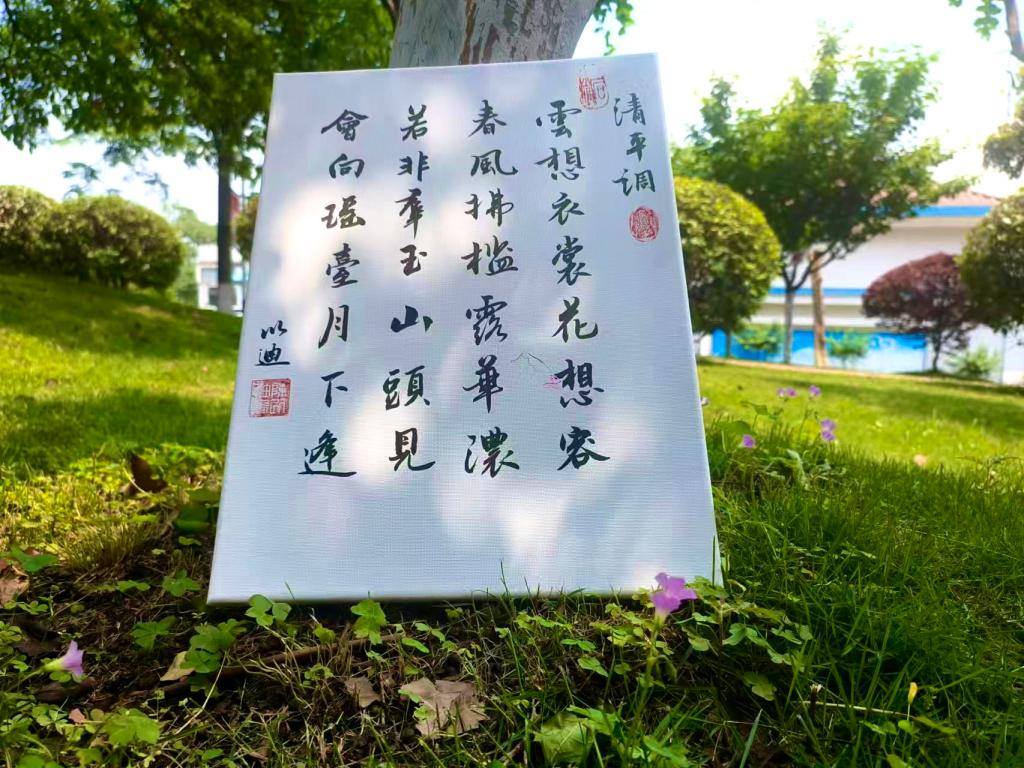 清平调
雲想衣裳花想容
春風拂檻露華濃
若非羣玉山頭見
會向瑶臺月下逢
以迪